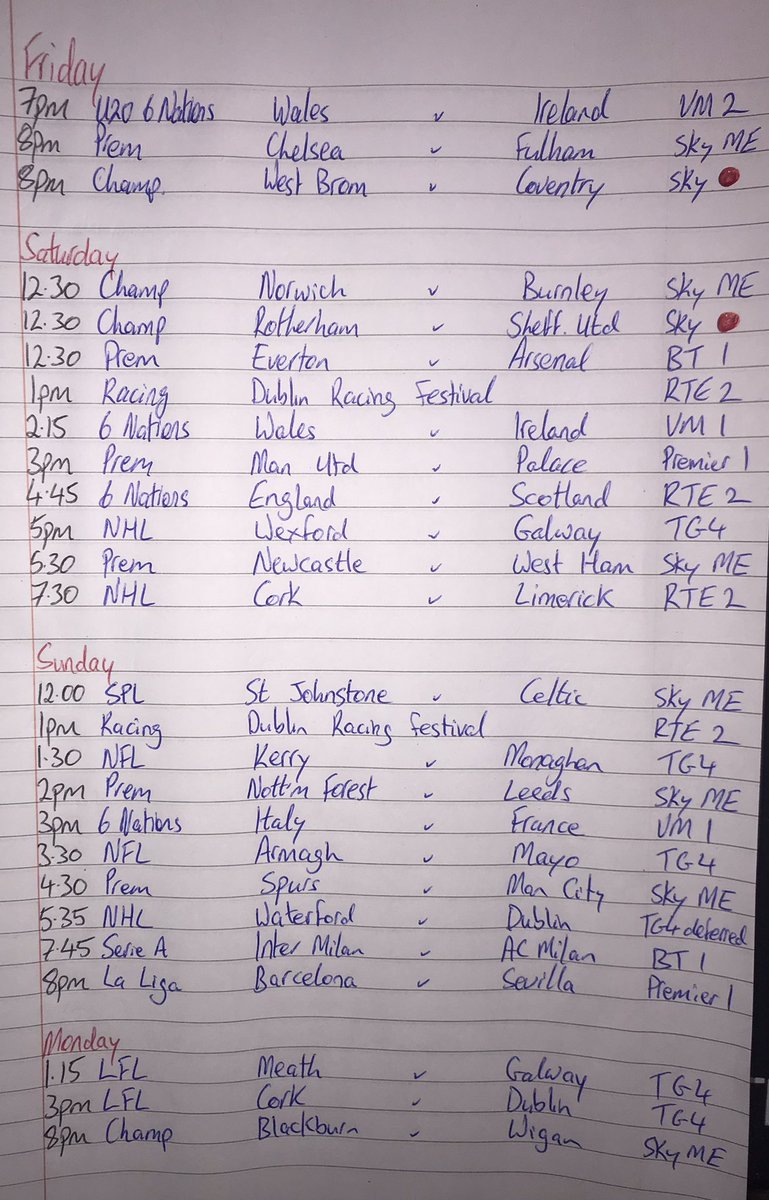 Friday
7pm U20 6 Nations Wales v Ireland VM 2
8pm Prem Chelsea v Fulham Sky ME
8pm Champ. West Brom v Coventry Sky
Saturday
12.30 Champ Norwich v Burnley Sky ME
12.30 Champ Rotherham v Sheff. Utd Sky
12.30 Prem Everton v Arsenal BT 1
1pm Racing Dublin Racing Festival RTE 2
2.15 6 Nations Wales v Ireland VM 1
3pm Prem Man Utd v Palace Premier 1
4.45 6 Nations England v Scotland RTE 2
5pm NHL Wexford v Galway TG4
5.30 Prem Newcastle v West Ham Sky ME
7.30 NHL Cork v Limerick RTE 2
Sunday
12.00 SPL St Johnstone v Celtic Sky ME
1pm Racing Dublin Racing Festival RTE 2
1.30 NFL Kerry v Monaghan TG4
2pm Prem Nott'm Forest v Leeds Sky ME
3pm 6 Nations Italy v France VM 1
3.30 NFL Armagh v Mayo TG4
4.30 Prem Spurs v Man City Sky ME
5.35 NHL Waterford v Dublin TG4 deferred
7.45 Serie A Inter Milan v AC Milan BT 1
8pm La Liga Barcelona v Sevilla Premier 1
Monday
1.15 LFL Meath v Galway TG4
3pm LFL Cork v Dublin TG4
8pm Champ Blackburn v Wigan Sky ME